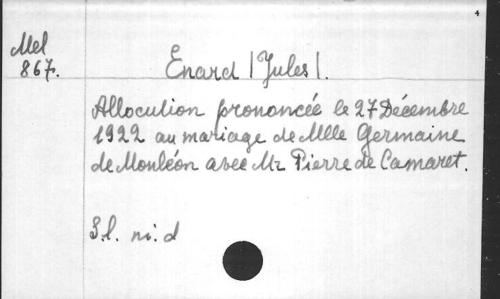 4
Mel
867.
Enard |Jules|.
Allocution prononcée le 27 Décembre
1922 au mariage de Mlle Germaine
de Monléon avec Mr Pierre de Camaret.
S.l. ni. d